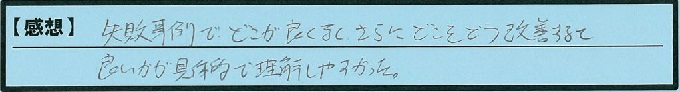 【感想】
失敗事例で、どこが良くなく、さらにどこをどう改善すると
良いかが具体的で理解しやすかった。